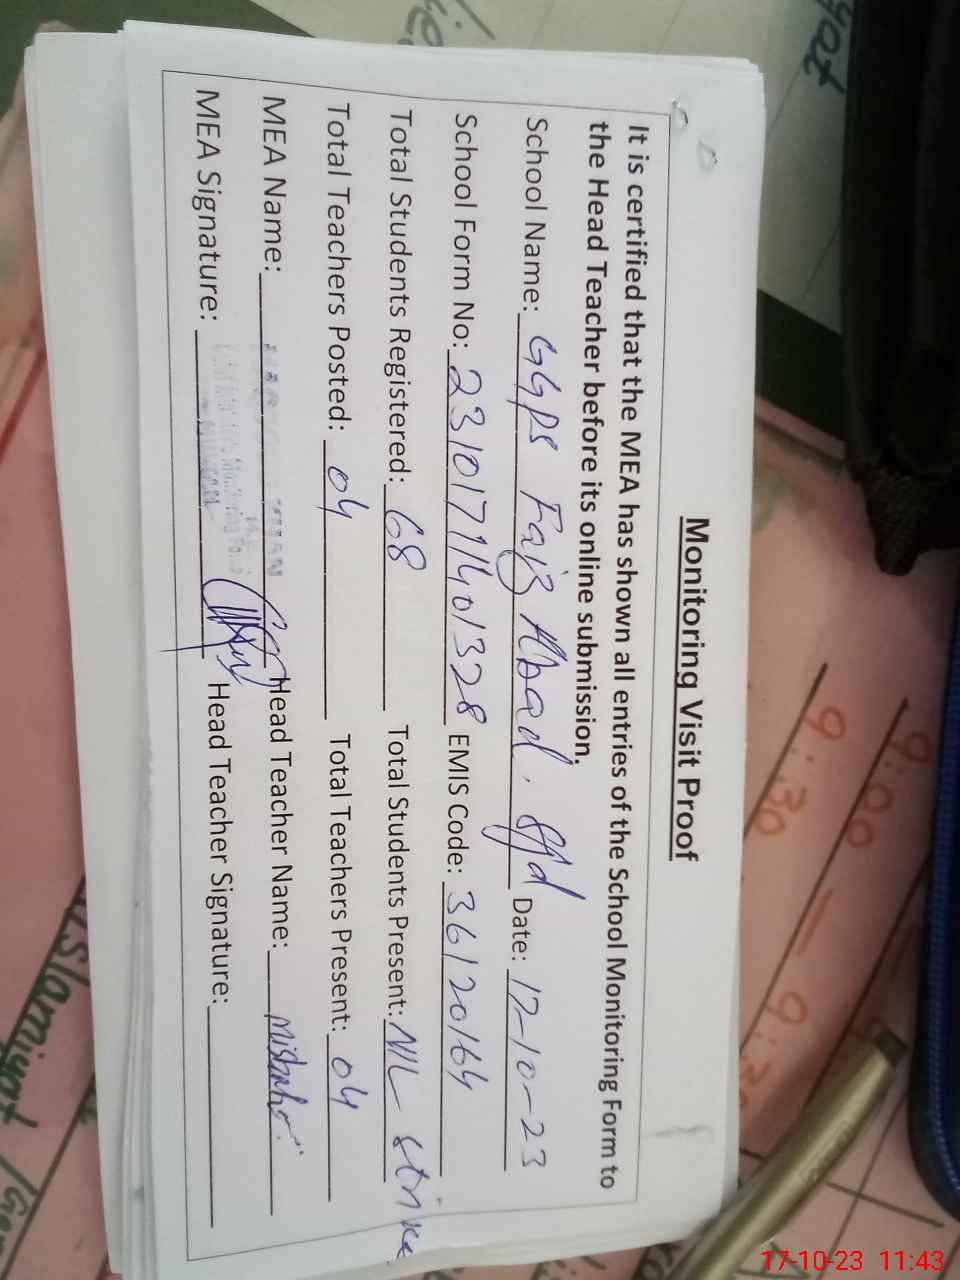 Monitoring Visit Proof
It is certified that the MEA has shown all entries of the School Monitoring Form to
the Head Teacher before its online submission.
School Name: GGPS Faiz Abad, Sjd Date: 17-10-23
School Form No: 2310171401328 EMIS Code: 36120164
Total Students Registered: 68 Total Students Present: NIL strike
Total Teachers Posted: 04 Total Teachers Present: 04
MEA Name: Head Teacher Name: Misbah
MEA Signature: Head Teacher Signature:
9:00
9:30 9:30
Islamiyat
17-10-23 11:43